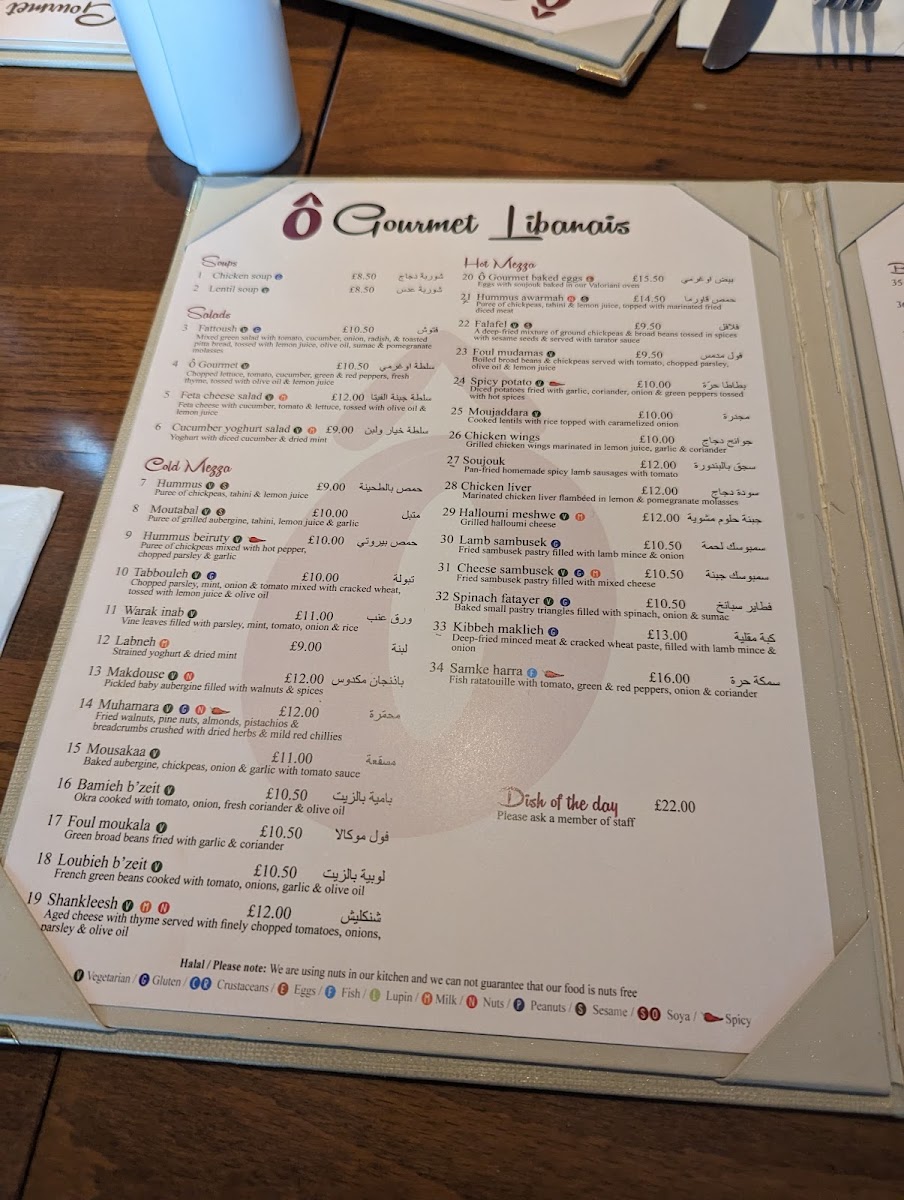 Gourmet
Ô Gourmet Libanais
Soups
1 Chicken soup £8.50 شوربة دجاج
2 Lentil soup V £8.50 شوربة عدس
Salads
3 Fattoush V G £10.50 فتوش
Mixed green salad with tomato, cucumber, onion, radish, & toasted
pitta bread, tossed with lemon juice, olive oil, sumac & pomegranate
molasses
4 Ô Gourmet V £10.50 سلطة اوغرمي
Chopped lettuce, tomato, cucumber, green & red peppers, fresh
thyme, tossed with olive oil & lemon juice
5 Feta cheese salad V M £12.00 سلطة جبنة الفيتا
Feta cheese with cucumber, tomato & lettuce, tossed with olive oil &
lemon juice
6 Cucumber yoghurt salad V M £9.00 سلطة خيار ولبن
Yoghurt with diced cucumber & dried mint
Cold Mezza
7 Hummus V S £9.00 حمص بالطحينة
Puree of chickpeas, tahini & lemon juice
8 Moutabal V S £10.00 متبل
Puree of grilled aubergine, tahini, lemon juice & garlic
9 Hummus beiruty V £10.00 حمص بيروتي
Puree of chickpeas mixed with hot pepper,
chopped parsley & garlic
10 Tabbouleh V G £10.00 تبولة
Chopped parsley, mint, onion & tomato mixed with cracked wheat,
tossed with lemon juice & olive oil
11 Warak inab V £11.00 ورق عنب
Vine leaves filled with parsley, mint, tomato, onion & rice
12 Labneh M £9.00 لبنة
Strained yoghurt & dried mint
13 Makdouse V N £12.00 باذنجان مكدوس
Pickled baby aubergine filled with walnuts & spices
14 Muhamara V G N £12.00 محمّرة
Fried walnuts, pine nuts, almonds, pistachios &
breadcrumbs crushed with dried herbs & mild red chillies
15 Mousakaa V £11.00 مسقعة
Baked aubergine, chickpeas, onion & garlic with tomato sauce
16 Bamieh b'zeit V £10.50 بامية بالزيت
Okra cooked with tomato, onion, fresh coriander & olive oil
17 Foul moukala V £10.50 فول موكالا
Green broad beans fried with garlic & coriander
18 Loubieh b'zeit V £10.50 لوبية بالزيت
French green beans cooked with tomato, onions, garlic & olive oil
19 Shankleesh V M N £12.00 شنكليش
Aged cheese with thyme served with finely chopped tomatoes, onions,
parsley & olive oil
Hot Mezza
20 Ô Gourmet baked eggs E £15.50 بيض اوغرمي
Eggs with soujouk baked in our Valoriani oven
21 Hummus awarmah N S £14.50 حمص قاورما
Puree of chickpeas, tahini & lemon juice, topped with marinated fried
diced meat
22 Falafel V S £9.50 فلافل
A deep-fried mixture of ground chickpeas & broad beans tossed in spices
with sesame seeds & served with tarator sauce
23 Foul mudamas V £9.50 فول مدمس
Boiled broad beans & chickpeas served with tomato, chopped parsley,
olive oil & lemon juice
24 Spicy potato V £10.00 بطاطا حرّة
Diced potatoes fried with garlic, coriander, onion & green peppers tossed
with hot spices
25 Moujaddara V £10.00 مجدرة
Cooked lentils with rice topped with caramelized onion
26 Chicken wings £10.00 جوانح دجاج
Grilled chicken wings marinated in lemon juice, garlic & coriander
27 Soujouk £12.00 سجق بالبندورة
Pan-fried homemade spicy lamb sausages with tomato
28 Chicken liver £12.00 سودة دجاج
Marinated chicken liver flambéed in lemon & pomegranate molasses
29 Halloumi meshwe V M £12.00 جبنة حلوم مشوية
Grilled halloumi cheese
30 Lamb sambusek G £10.50 سمبوسك لحمة
Fried sambusek pastry filled with lamb mince & onion
31 Cheese sambusek V G M £10.50 سمبوسك جبنة
Fried sambusek pastry filled with mixed cheese
32 Spinach fatayer V G £10.50 فطاير سبانخ
Baked small pastry triangles filled with spinach, onion & sumac
33 Kibbeh maklieh G £13.00 كبة مقلية
Deep-fried minced meat & cracked wheat paste, filled with lamb mince &
onion
34 Samke harra F £16.00 سمكة حرة
Fish ratatouille with tomato, green & red peppers, onion & coriander
Dish of the day £22.00
Please ask a member of staff
Halal / Please note: We are using nuts in our kitchen and we can not guarantee that our food is nuts free
V Vegetarian / G Gluten / C R Crustaceans / E Eggs / F Fish / L Lupin / M Milk / N Nuts / P Peanuts / S Sesame / S O Soya / Spicy
35